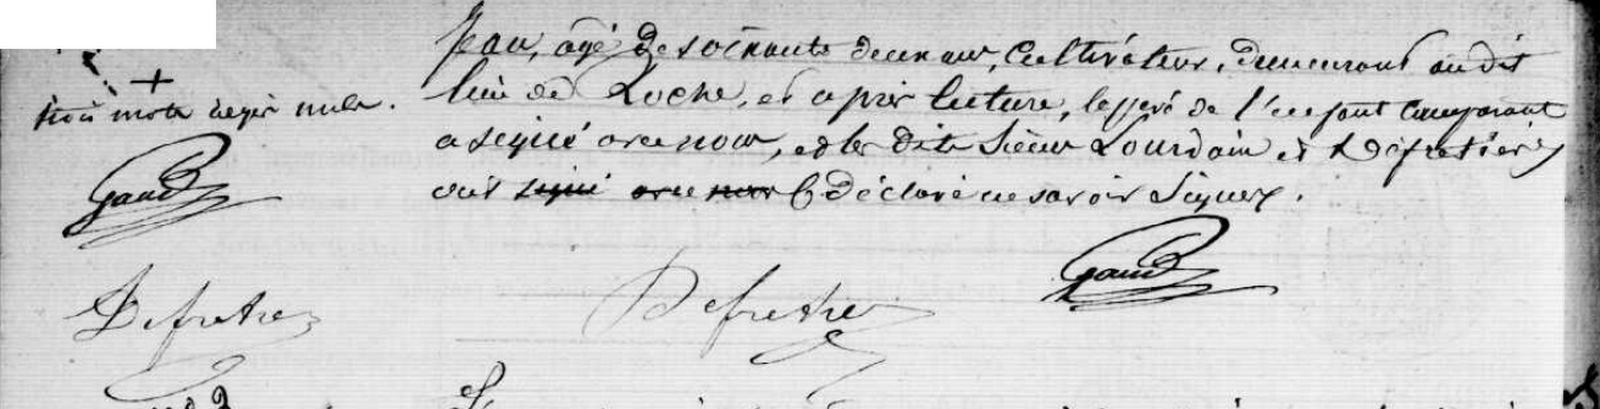 Jean, agé de soixante deux ans, Cultivateur, demeurant au dit
lieu de Roche, et après lecture, le père de l'enfant comparant
a signé avec nous, et les dits Sieurs Lourdain et Défretière
ont signé avec nous déclaré ne savoir signer.
+
trois mots rayés nuls.
Gaud
Gaud
Defretier
Defretier